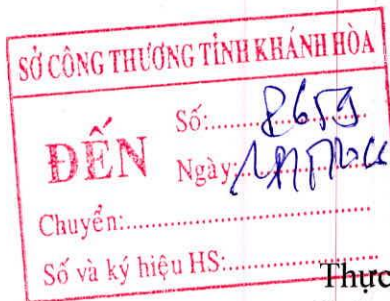 SỞ CÔNG THƯƠNG TỈNH KHÁNH HÒA
ĐẾN
Số:..................
Ngày:
Chuyển:................................
Số và ký hiệu HS:....................
Thực